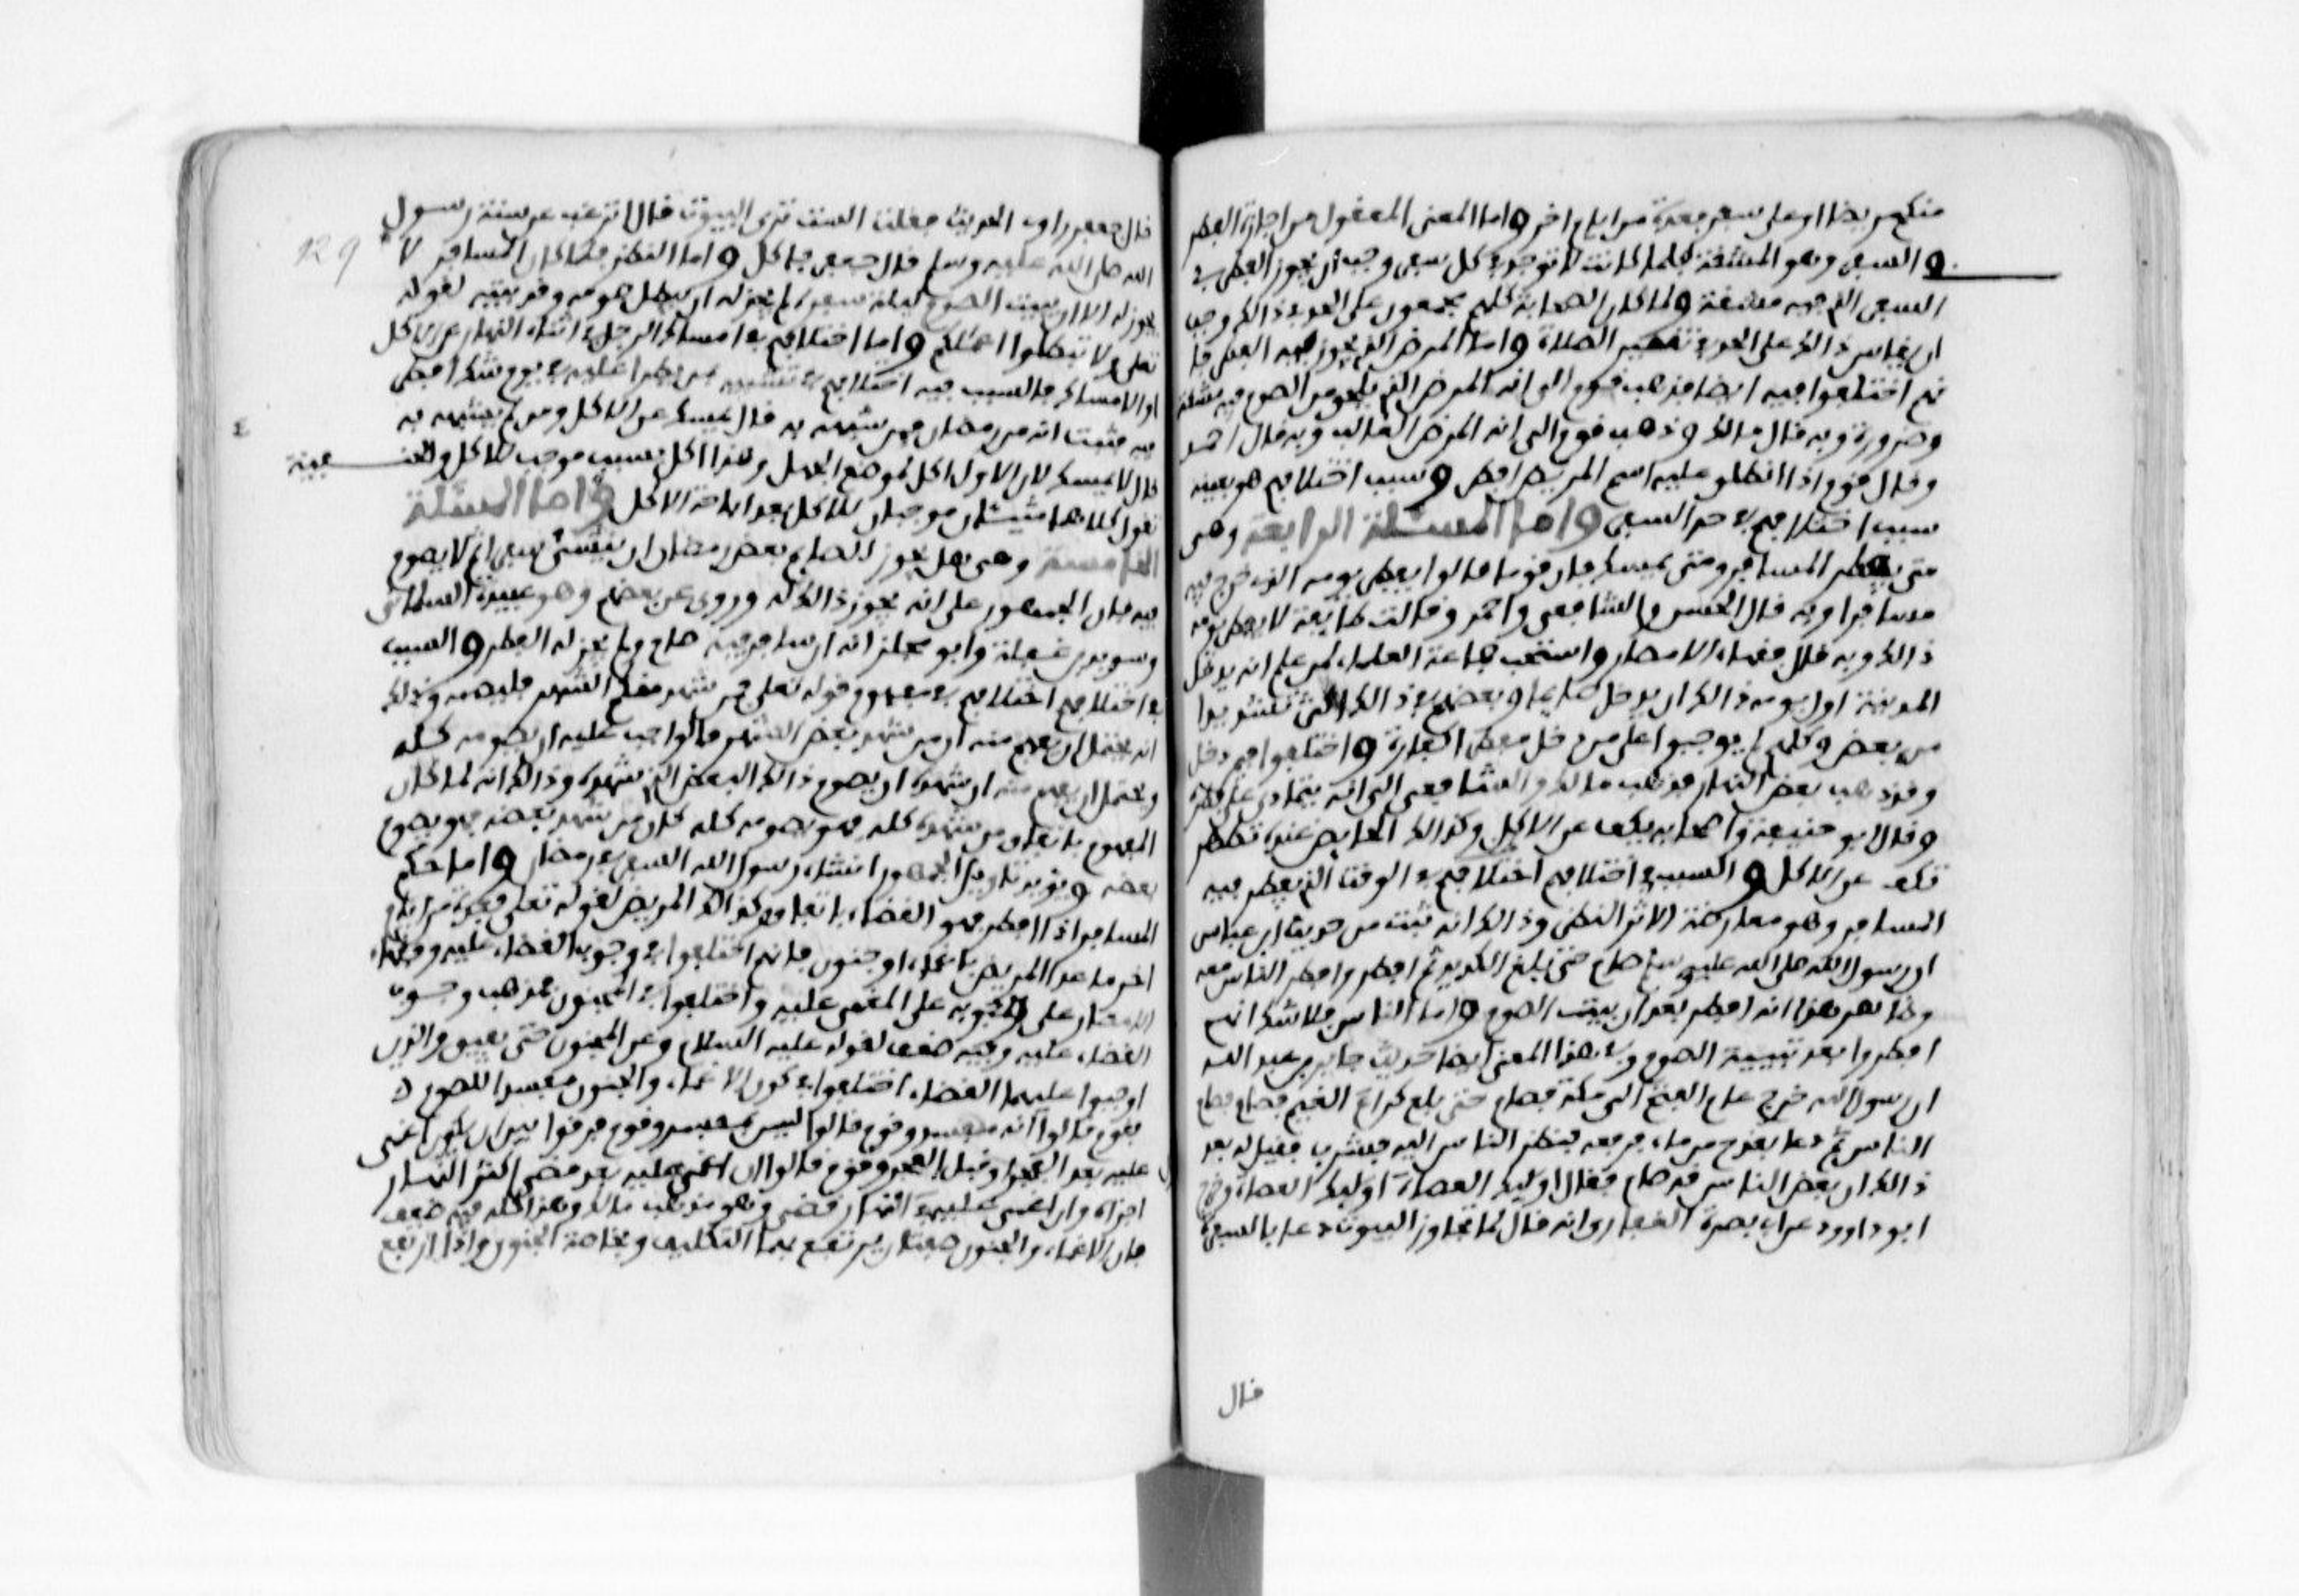 منكم مريضا او على سفر فعدة من ايام اخر واما المعنى المعقول من اجازة الفطر
في السفر وهو المشقة فلما كانت لا توجد في كل سفر وجب ان يجوز الفطر في
السفر الذي فيه مشقة ولما كان الصحابة كلهم مجمعون على الحد في ذالك وجب
ان يقاس ذالك على الحد في تقصير الصلاة واما المرض الذي يجوز فيه الفطر فا
نهم اختلفوا فيه ايضا فذهب قوم الى انه المرض الذي يلحق من الصوم فيه مشقة
وضرورة وبه قال مالك وذهب قوم الى انه المرض الغالب وبه قال احمد
وقال قوم اذا انطلق عليه اسم المريض افطر وسبب اختلافهم هو بعينه
سبب اختلافهم في حد السفر واما المسئلة الرابعة وهى
متى يفطر المسافر ومتى يمسك فان قوما قالوا يفطر يومه الذى خرج فيه
مسافرا وبه قال الحسن والشافعى واحمد وقالت طايفة لا يفطر يومه
ذالك وبه قال فقهاء الامصار واستحب جماعة العلماء لمن علم انه يدخل
المدينة اول يومه ذالك ان يدخل صايما وبعضهم في ذالك اكثر تشديدا
من بعض وكلهم لم يوجبوا على من دخل مفطرا كفارة واختلفوا فيمن دخل
وقد ذهب بعض النهار فذهب مالك والشافعى الى انه يتمادى على فطره
وقال ابو حنيفة واصحابه يكف عن الاكل وكذالك الحايض عنده تطهر
تكف عن الاكل والسبب في اختلافهم اختلافهم في الوقت الذي يفطر فيه
المسافر وهو معارضة الاثر النظر وذالك انه ثبت من حديث ابن عباس
ان رسول الله صلى الله عليه وسلم صام حتى بلغ الكديد ثم افطر وافطر الناس معه
وظاهر هذا انه افطر بعد ان بيت الصوم واما الناس فلا شك انهم
افطروا بعد تبييته الصوم وفي هذا المعنى ايضا حديث جابر بن عبد الله
ان رسول الله خرج عام الفتح الى مكة فصام حتى بلغ كراع الغميم فصام فصام
الناس ثم دعا بقدح من ماء فرفعه فنظر الناس اليه فشرب فقيل له بعد
ذالك ان بعض الناس قد صام فقال اوليك العصاة اوليك العصاة وخرج
ابو داوود عن ابي بصرة الغفاري انه قال لما تجاوز البيوت دعا بالسفرة
قال
129
قال جعفر راوي الحديث فقلت الست ترى البيوت قال اترغب عن سنة رسول
الله صلى الله عليه وسلم قال جعفر فاكل واما النظر فلما كان المسافر لا
يجوز له الا ان يبيت الصوم ليلة سفره لم يجز له ان يبطل صومه وقد بيته لقوله
تعلى ولا تبطلوا اعمالكم واما اختلافهم في امساك الرجل في اثناء النهار عن الاكل
او لا امساك فالسبب فيه اختلافهم في تشبيهه بمن يطرا عليه في يوم شك افطر
فيه فثبت انه من رمضان فمن شبهه به قال يمسك عن الاكل ومن لم يشبهه به
قال لا يمسك لان الاول اكل لموضع الجهل وهذا اكل بسبب موجب للاكل والحنفية
تقول كلاهما شيئان موجبان للاكل بعد اباحة الاكل واما المسئلة
الخامسة وهى هل يجوز للصايم بعض رمضان ان ينشئ سفرا ثم لا يصوم
فيه فان الجمهور على انه يجوز ذالك له وروى عن بعضهم وهو عبيدة السلماني
وسويد بن غفلة وابو مجلز انه ان سافر فيه صام ولم يجز له الفطر والسبب
في اختلافهم اختلافهم في مفهوم قوله تعلى فمن شهد منكم الشهر فليصمه وذلك
انه يحتمل ان يفهم منه ان من شهد بعض الشهر فالواجب عليه ان يصومه كله
ويحتمل ان يفهم منه ان شهد ان يصوم ذالك البعض الذي شهده وذالك انه لما كان
المفهوم باتفاق من شهده كله فهو يصومه كله كان من شهد بعضه فهو يصوم
بعضه ويؤيد تاويل الجمهور انشاء رسول الله السفر في رمضان واما حكم
المسافر اذا افطر فهو القضاء باتفاق وكذالك المريض لقوله تعلى فعدة من ايام
اخر ما عدا المريض باغماء او جنون فانهم اختلفوا في وجوب القضاء عليه وفقهاء
الامصار على وجوبه على المغمى عليه واختلفوا في المجنون فمذهب وجوب
القضاء عليه وفيه ضعف لقوله عليه السلام وعن المجنون حتى يفيق والذين
اوجبوا عليهما القضاء اختلفوا في كون الاغماء والجنون مفسدا للصوم ف
فقوم قالوا انه مفسد وقوم قالوا ليس بمفسد وقوم فرقوا بين ان يكون اغمى
عليه بعد الفجر او قبل الفجر وقوم قالوا ان اغمى عليه بعد مضى اكثر النهار
اجزاه وان اغمى عليه في اول النهار قضى وهو مذهب مالك وهذا كله فيه ضعف
فان الاغماء والجنون صفتان يرتفع بهما التكليف وبخاصة الجنون واذا ارتفع